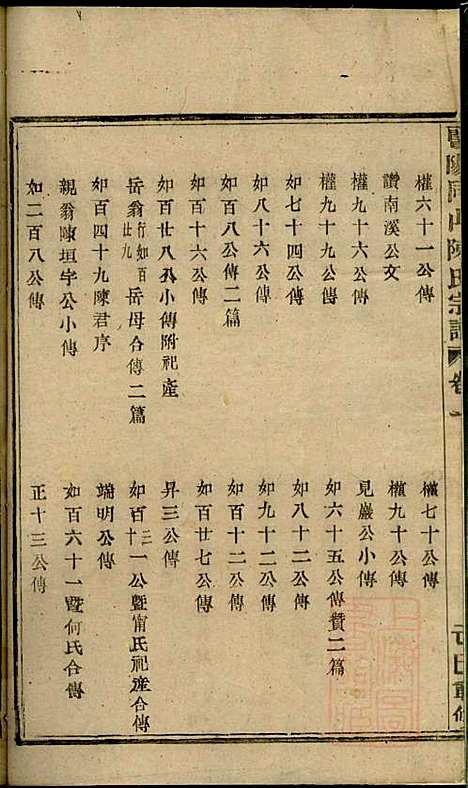 暨陽同山陳氏宗譜
卷一
重修
權六十一公傳
權七十公傳
讚南溪公文
權九十公傳
權九十六公傳
見巖公小傳
權九十九公傳
如六十五公傳贊二篇
如七十四公傳
如八十二公傳
如八十六公傳
如九十二公傳
如百八公傳二篇
如百十二公傳
如百十六公傳
如百廿七公傳
如百廿八公小傳附祀產
昇三公傳
岳翁行如百廿九岳母合傳二篇
如百三十一公暨甯氏祀產合傳
如百四十九陳君序
端明公傳
親翁陳垣宇公小傳
如百六十一暨何氏合傳
如二百八公傳
正十三公傳